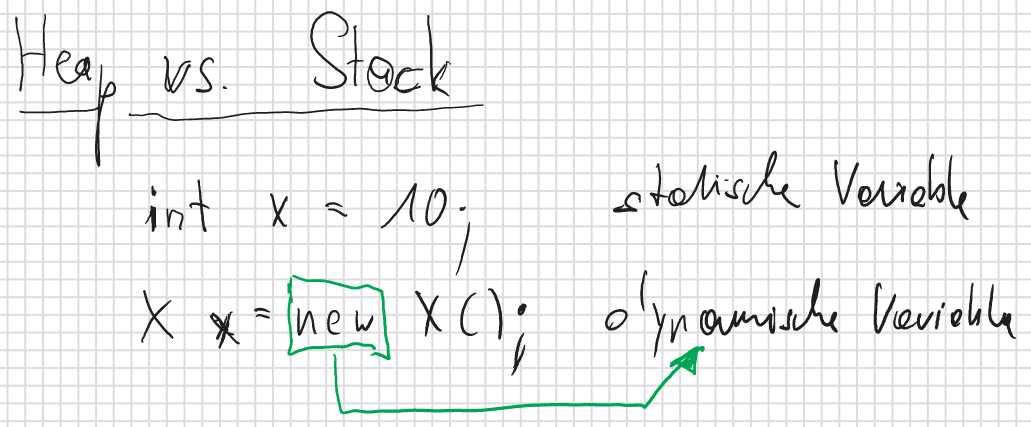 Heap vs. Stack
int x = 10; statische Variable
X x = new X(); dynamische Variable